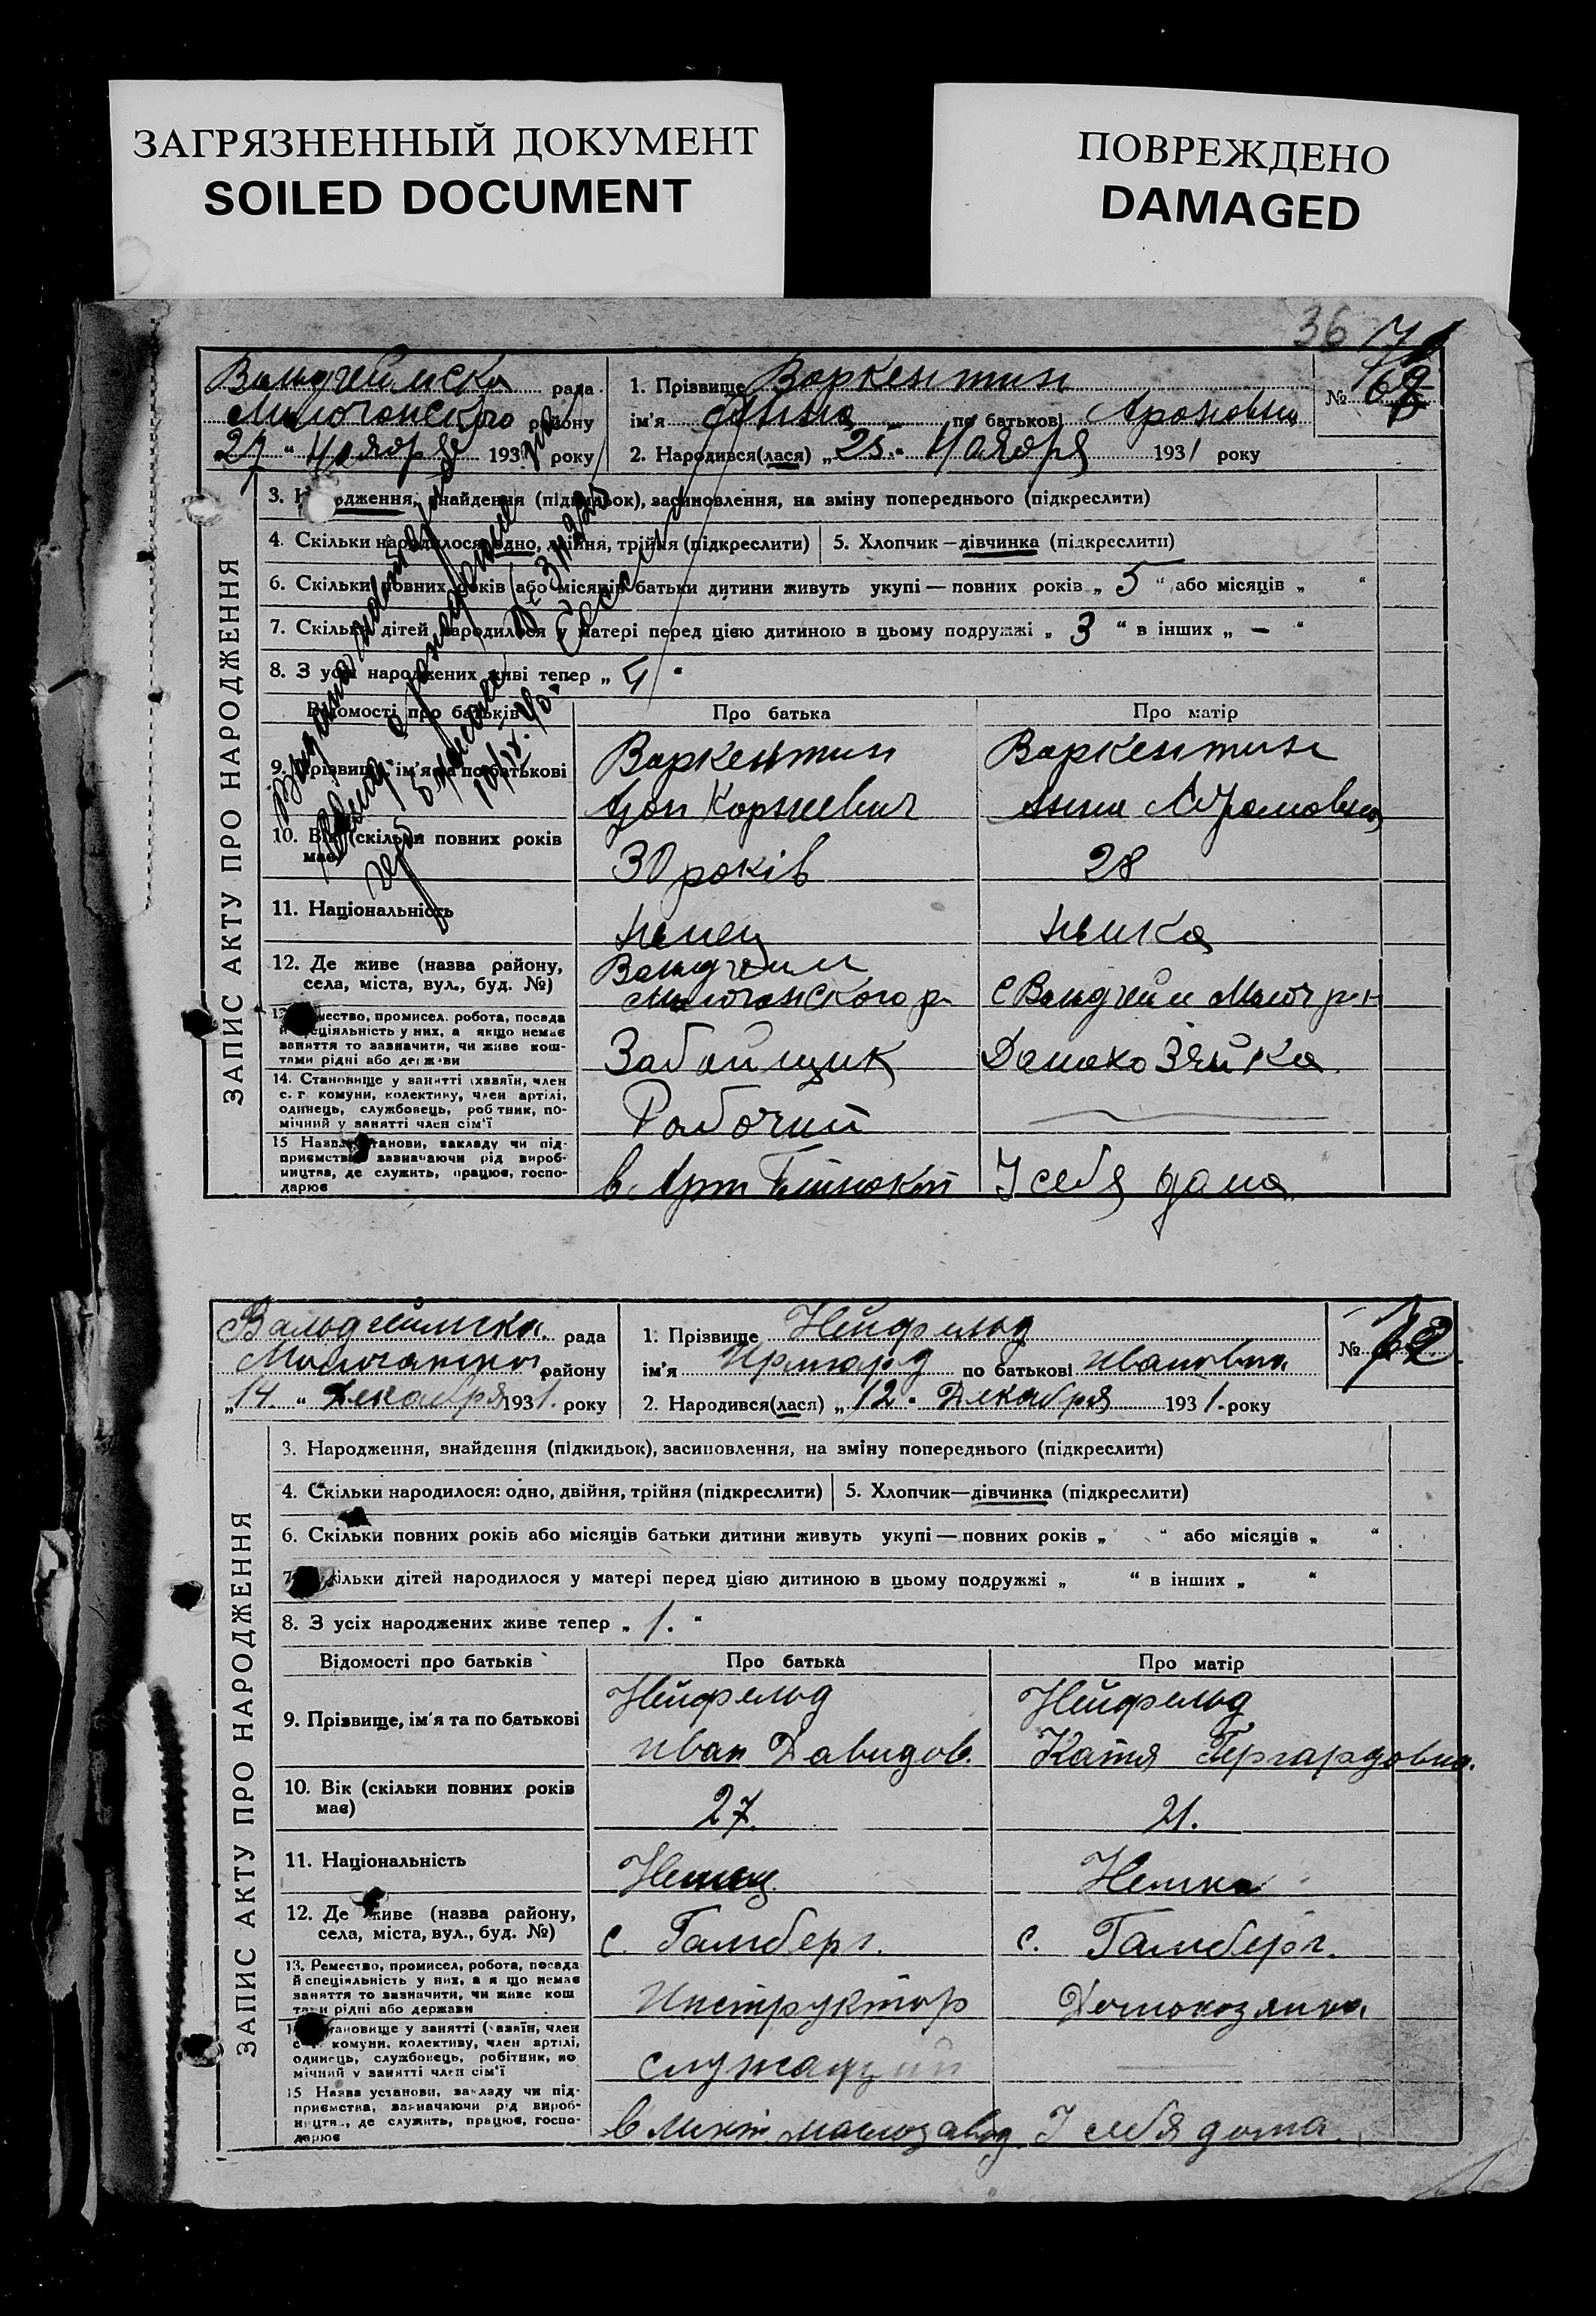 ЗАГРЯЗНЕННЫЙ ДОКУМЕНТ
SOILED DOCUMENT
ПОВРЕЖДЕНО
DAMAGED
36
рада
району
27 " Ноября 1931 року
1. Прізвище Варкентин
ім'я Анна по батькові Ароновна
2. Народився(лася) „25" Ноября 1931 року
№
ЗАПИС АКТУ ПРО НАРОДЖЕННЯ
3. Народження, знайдення (підкидьок), засиновлення, на зміну попереднього (підкреслити)
4. Скільки народилося: одно, двійня, трійня (підкреслити) 5. Хлопчик—дівчинка (підкреслити)
6. Скільки повних років (або місяців батьки дитини живуть укупі — повних років „ 5 " або місяців „ "
7. Скільки дітей народилося у матері перед цією дитиною в цьому подружжі „ 3 " в інших „ — "
8. З усіх народжених живі тепер „ 4 "
Відомості про батьків Про батька Про матір
9. Прізвище, ім'я та по батькові
Варкентин Варкентин
Арон Корнеевич Анна Абрамовна
10. Вік (скільки повних років має)
30 років 28
11. Національність
Немец Немка
12. Де живе (назва району, села, міста, вул., буд. №)
Вальдгейм
Молочанского р. с Вальдгейм Молоч р-н
13. Ремество, промисел, робота, посада
й спеціяльність у них, а якщо немає
заняття то зазначити, чи живе кош-
тами рідні або держави
Забойщик Домохозяйка
14. Становище у занятті (хазяїн, член
с. г. комуни, колективу, член артілі,
одинець, службовець, робітник, по-
мічний у занятті член сім'ї
Рабочий —
15 Назва установи, закладу чи під-
приємства, зазначаючи рід вироб-
ництва, де служить, працює, госпо-
дарює
в У себя дома
Вальдгеймска рада
району
„14. " Декабря 1931. року
1. Прізвище Нейфельд
ім'я Ирмгард по батькові Ивановна
2. Народився(лася) „12" Декабря 1931. року
№ 72
ЗАПИС АКТУ ПРО НАРОДЖЕННЯ
3. Народження, знайдення (підкидьок), засиновлення, на зміну попереднього (підкреслити)
4. Скільки народилося: одно, двійня, трійня (підкреслити) 5. Хлопчик—дівчинка (підкреслити)
6. Скільки повних років або місяців батьки дитини живуть укупі — повних років „ " або місяців „ "
7. Скільки дітей народилося у матері перед цією дитиною в цьому подружжі „ " в інших „ "
8. З усіх народжених живе тепер „ 1. "
Відомості про батьків Про батька Про матір
9. Прізвище, ім'я та по батькові
Нейфельд Нейфельд
Иван Давидов. Катя Гергардовна.
10. Вік (скільки повних років має)
27. 21.
11. Національність
Немец Немка
12. Де живе (назва району, села, міста, вул., буд. №)
с. Гамберг. с. Гамберг.
13. Ремество, промисел, робота, посада
й спеціяльність у них, а якщо немає
заняття то зазначити, чи живе кош
тами рідні або держави
Инструктор Домохозяйка
14. Становище у занятті (хазяїн, член
с. г. комуни, колективу, член артілі,
одинець, службовець, робітник, по
мічний у занятті член сім'ї
служащий
15 Назва установи, закладу чи під-
приємства, зазначаючи рід вироб-
ництва, де служить, працює, госпо-
дарює
в маслозавод У себя дома.